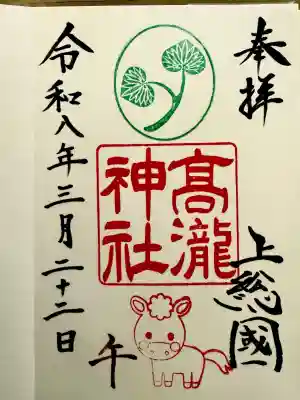 奉拝
上総國
髙瀧
神社
令和八年三月二十二日
午